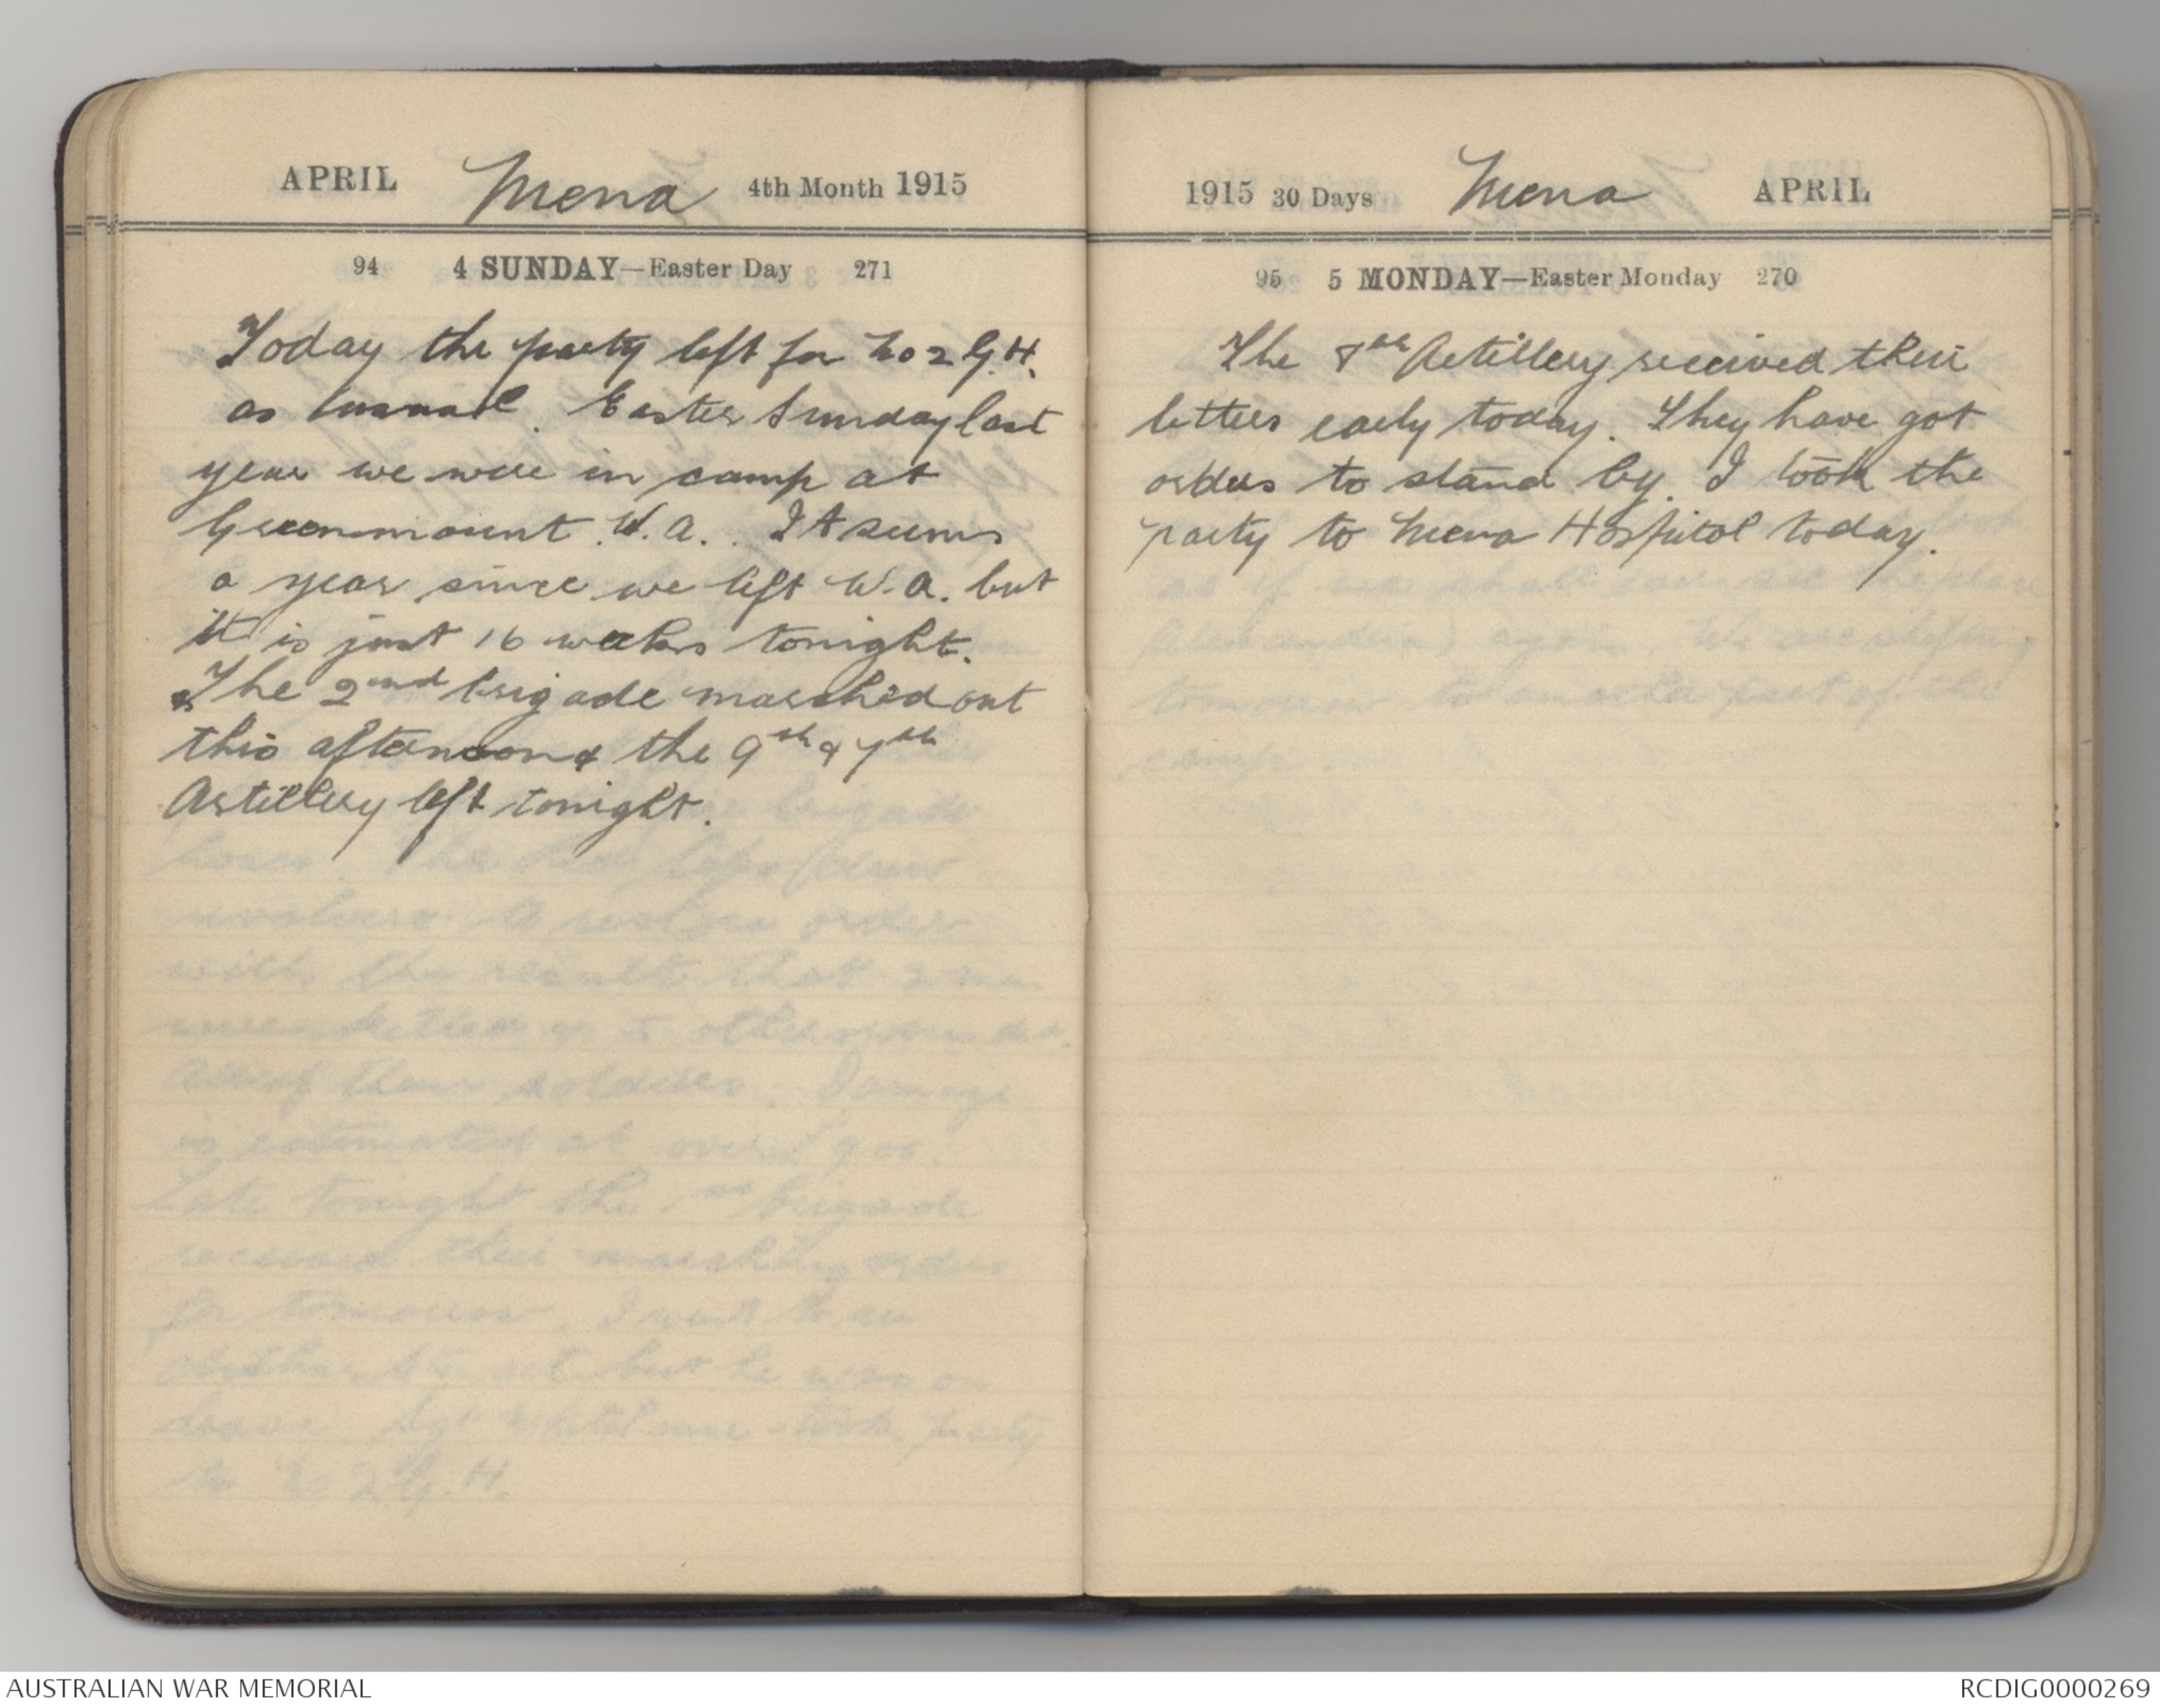 APRIL Mena 4th Month 1915
94 4 SUNDAY—Easter Day 271
Today the party left for No 2 G.H.
as usual. Easter Sunday last
year we were in camp at
Greenmount W.A. It seems
a year since we left W.A. but
it is just 16 weeks tonight.
The 2nd brigade marched out
this afternoon & the 9th & 7th
Artillery left tonight.
1915 30 Days Mena APRIL
95 5 MONDAY—Easter Monday 270
The 8th Artillery received their
letters early today. They have got
orders to stand by. I took the
party to Mena Hospital today.
AUSTRALIAN WAR MEMORIAL
RCDIG0000269